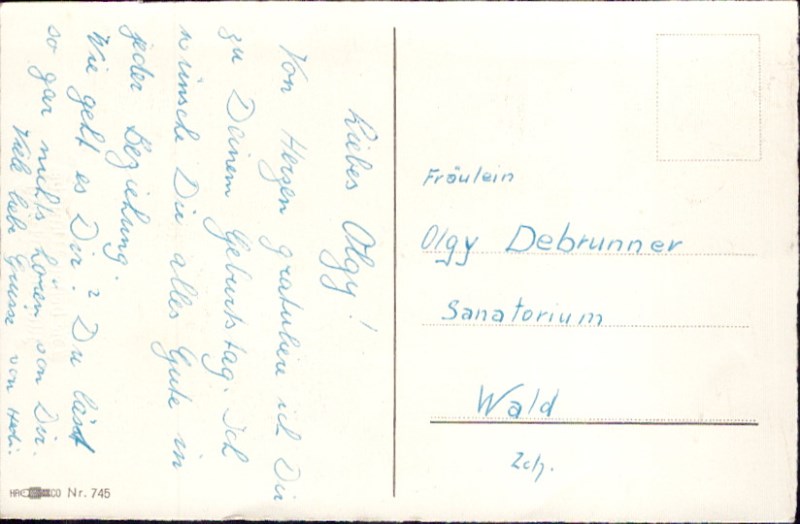 Liebes Olgy!
Von Herzen gratuliere ich Dir
zu Deinem Geburtstag. Ich
wünsche Dir alles Gute in
jeder Beziehung.
Wie geht es Dir? Du lässt
so gar nichts hören von Dir.
Viele liebe Grüsse von
Fräulein
Olgy Debrunner
Sanatorium
Wald
Zch.
Nr. 745